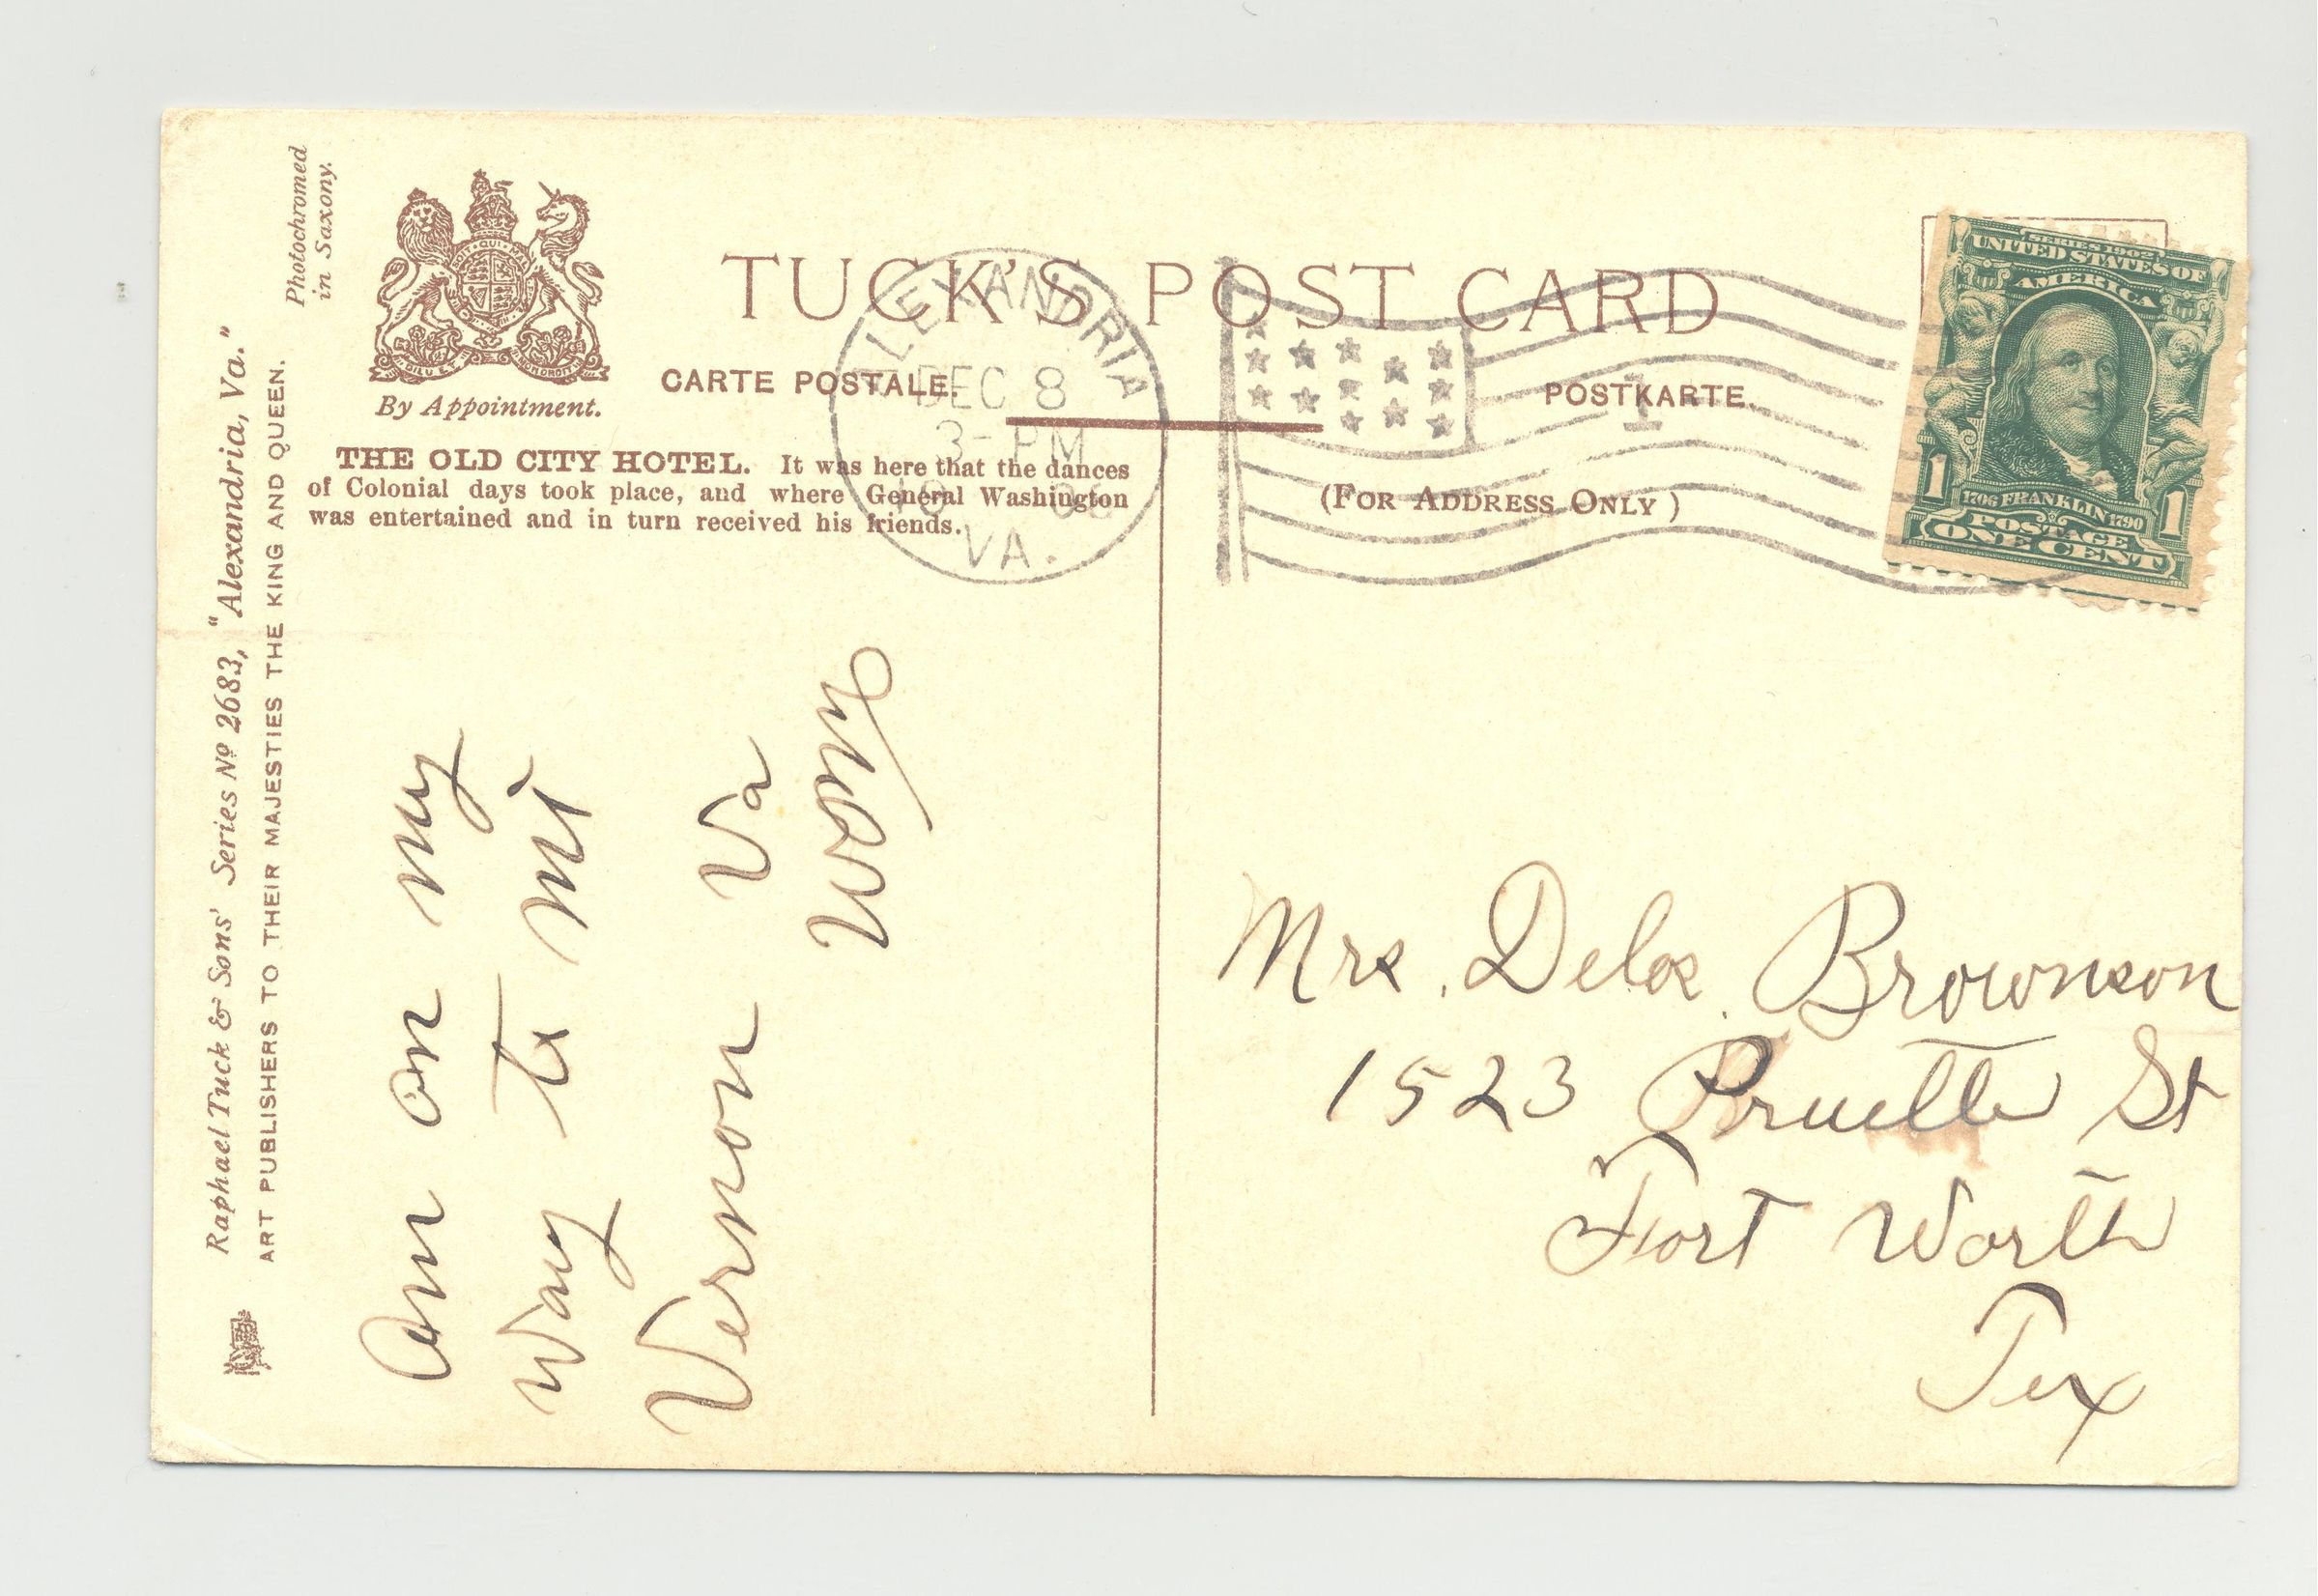 Photochromed
in Saxony.
Raphael Tuck & Sons' Series Nº 2683, "Alexandria, Va."
ART PUBLISHERS TO THEIR MAJESTIES THE KING AND QUEEN.
By Appointment.
TUCK'S POST CARD
CARTE POSTALE.
POSTKARTE.
(FOR ADDRESS ONLY)
THE OLD CITY HOTEL. It was here that the dances
of Colonial days took place, and where General Washington
was entertained and in turn received his friends.
ALEXANDRIA
DEC 8
3-PM
VA.
1
SERIES 1902
UNITED STATES OF
AMERICA
1706 FRANKLIN 1790
1 POSTAGE 1
ONE CENT
Am on my
way to Mt
Vernon Va
Mrs. Delos Brownson
1523 Pruette St
Fort Worth
Tex